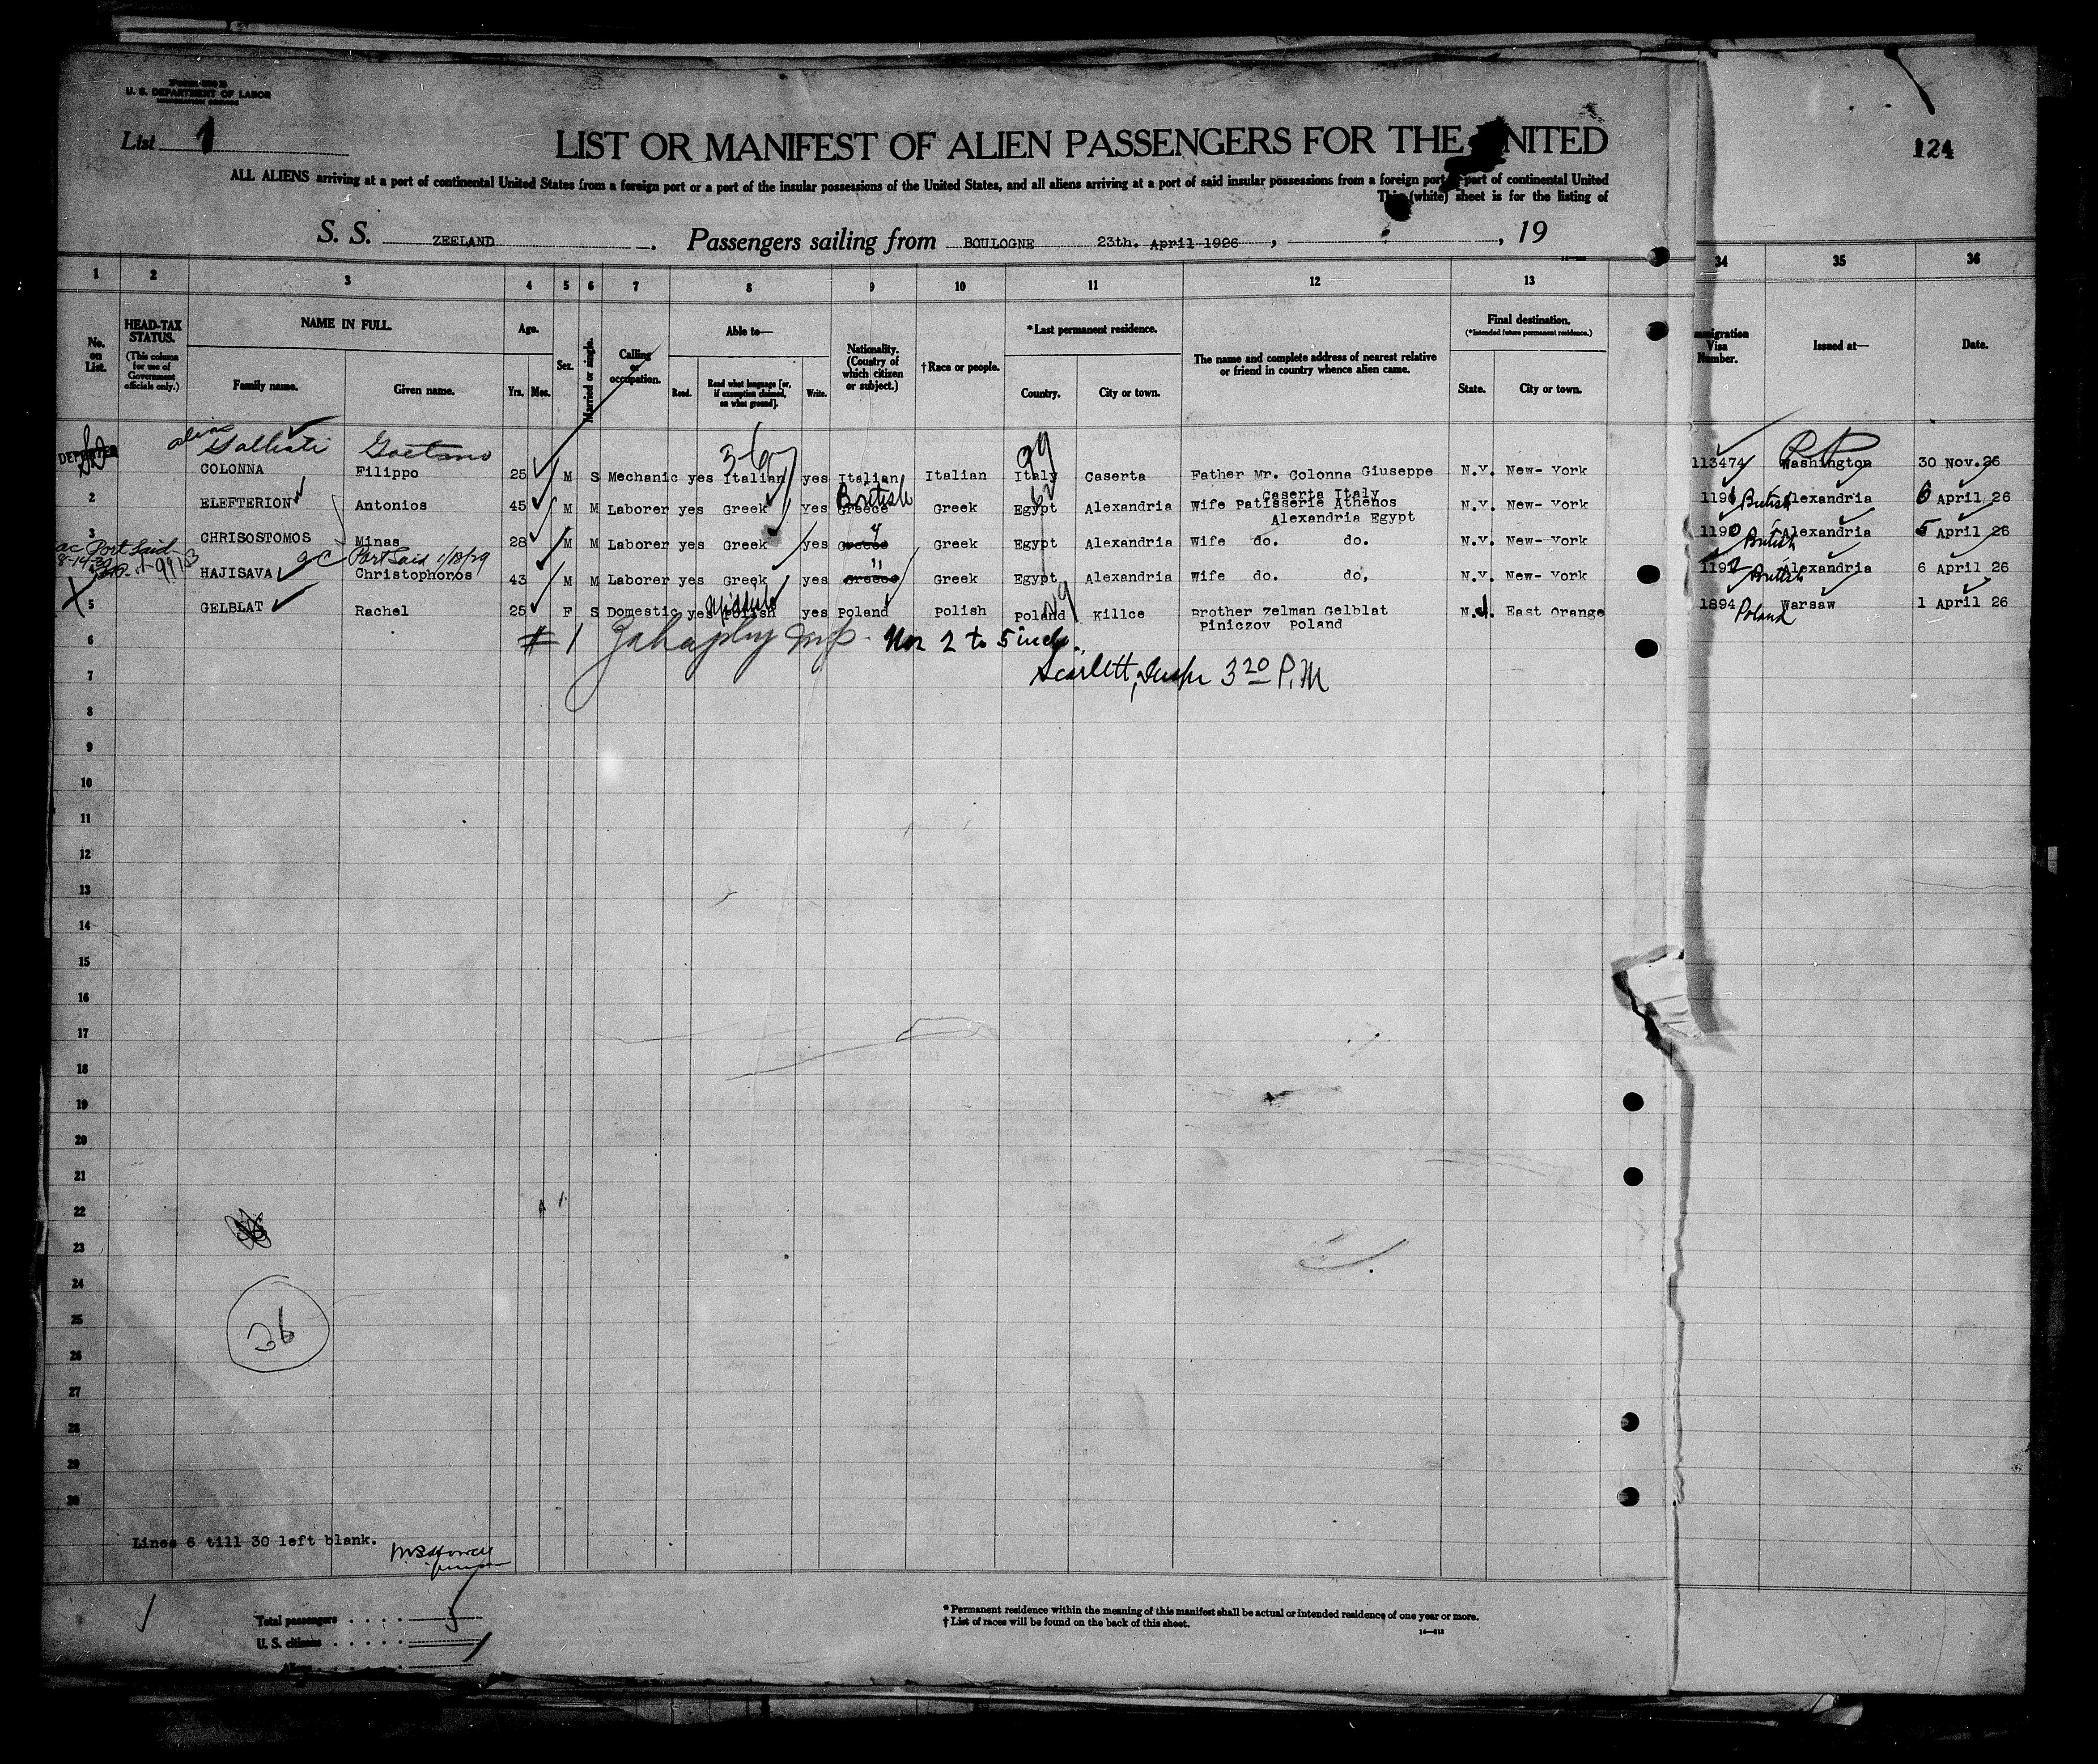 U. S. DEPARTMENT OF LABOR
List 1
LIST OR MANIFEST OF ALIEN PASSENGERS FOR THE UNITED
124
ALL ALIENS arriving at a port of continental United States from a foreign port or a port of the insular possessions of the United States, and all aliens arriving at a port of said insular possessions from a foreign port part of continental United
(white) sheet is for the listing of
S. S. ZEELAND. Passengers sailing from BOULOGNE 23th. April 1926, , 19
1 2 3 4 5 6 7 8 9 10 11 12 13 34 35 36
No. on List.
HEAD-TAX STATUS.
(This column for use of Government officials only.)
NAME IN FULL.
Family name. Given name.
Age.
Yrs. Mos.
Sex.
Married or single.
Calling or occupation.
Able to—
Read. Read what language [or, if exemption claimed, on what ground]. Write.
Nationality. (Country of which citizen or subject.)
†Race or people.
*Last permanent residence.
Country. City or town.
The name and complete address of nearest relative or friend in country whence alien came.
Final destination.
(*Intended future permanent residence.)
State. City or town.
Visa Number.
Issued at—
Date.
alias Galliati Gaetano
DEPORTED COLONNA Filippo 25 M S Mechanic yes Italian yes Italian Italian Italy Caserta Father Mr. Colonna Giuseppe N.Y. New- York 113474 Washington 30 Nov. 26
Caserta Italy
British
2 ELEFTERION Antonios 45 M M Laborer yes Greek yes Greece Greek Egypt Alexandria Wife Patisserie Athenos N.Y. New- York 1191 British Alexandria 6 April 26
Alexandria Egypt
3 CHRISOSTOMOS Minas 28 M M Laborer yes Greek yes Greece Greek Egypt Alexandria Wife do. do. N.Y. New- York 1190 British Alexandria 5 April 26
ac Port Said
Port Said 1/18/29
HAJISAVA Christophoros 43 M M Laborer yes Greek yes Greece Greek Egypt Alexandria Wife do. do, N.Y. New- York 1192 British Alexandria 6 April 26
5 GELBLAT Rachel 25 F S Domestic yes Polish yes Poland Polish Poland Killce Brother Zelman Gelblat N.J. East Orange 1894 Poland Warsaw 1 April 26
Piniczov Poland
6 # 1 Nos 2 to 5 incl.
7 Scarlett, 3 20 P.M
8
9
10
11
12
13
14
15
16
17
18
19
20
21
22
23
24
25
26
27
28
29
30
36
Lines 6 till 30 left blank.
Total passengers . . . . 5
U. S. citizens . . . . . .
*Permanent residence within the meaning of this manifest shall be actual or intended residence of one year or more.
†List of races will be found on the back of this sheet.